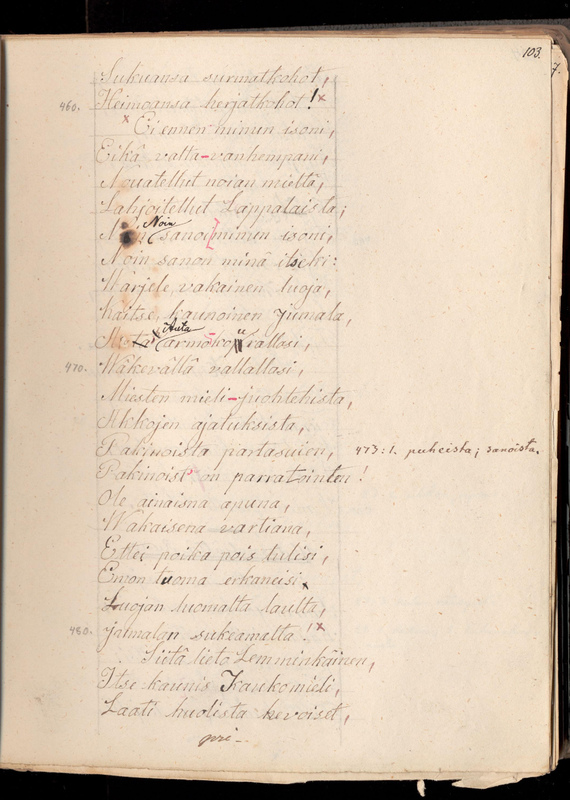 103.
Sukuansa surmatkohot,
460. Heimoansa herjatkohot!
Ei ennen minun isoni,
Eikä valta-vanhempani,
Nouatellut noian mieltä,
Lahjoitellut Lappalaista;
Noin sanoi minun isoni,
Noin sanon minä itseki:
Warjele, vakainen luoja,
Kaitse, kaunoinen jumala,
Auta armo-kourallasi,
470. Wäkevällä vallallasi,
Miesten mieli-juohtehista,
Akkojen ajatuksista,
Pakinoista partasuien, 473: l. puheista; sanoista.
Pakinoist' on parratointen!
Ole ainaisna apuna,
Wakaisena vartiana,
Ettei poika pois tulisi,
Emon tuoma erkaneisi
Luojan luomalta laulta,
480. jumalan sukeamalta!
Siitä lieto Lemminkäinen,
Itse kaunis Kaukomieli,
Laati huolista hevoiset,
pri-